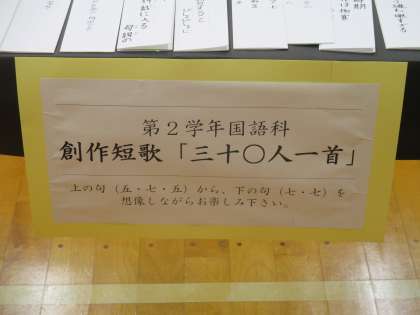 第2学年国語科
創作短歌「三十〇人一首」
上の句(五・七・五)から、下の句(七・七)を
想像しながらお楽しみ下さい。